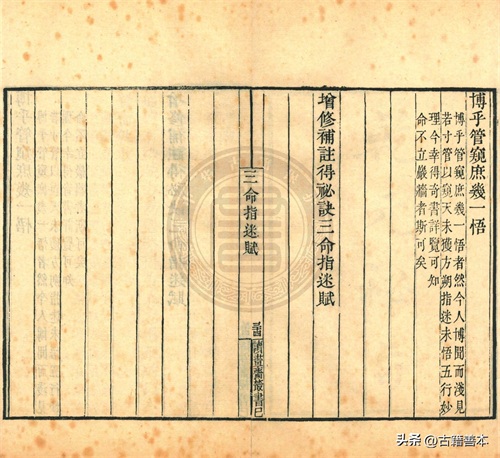 博乎管窺庶幾一悟
博乎管窺庶幾一悟者然今人博聞而淺見
若寸管以窺天未獲方朔指迷未悟五行妙
理今幸得奇書詳覽可知
命不立巖牆者斯可矣
增修補註得祕訣三命指迷賦
三命指迷賦
讀畫齋叢書已
头条 @古籍善本